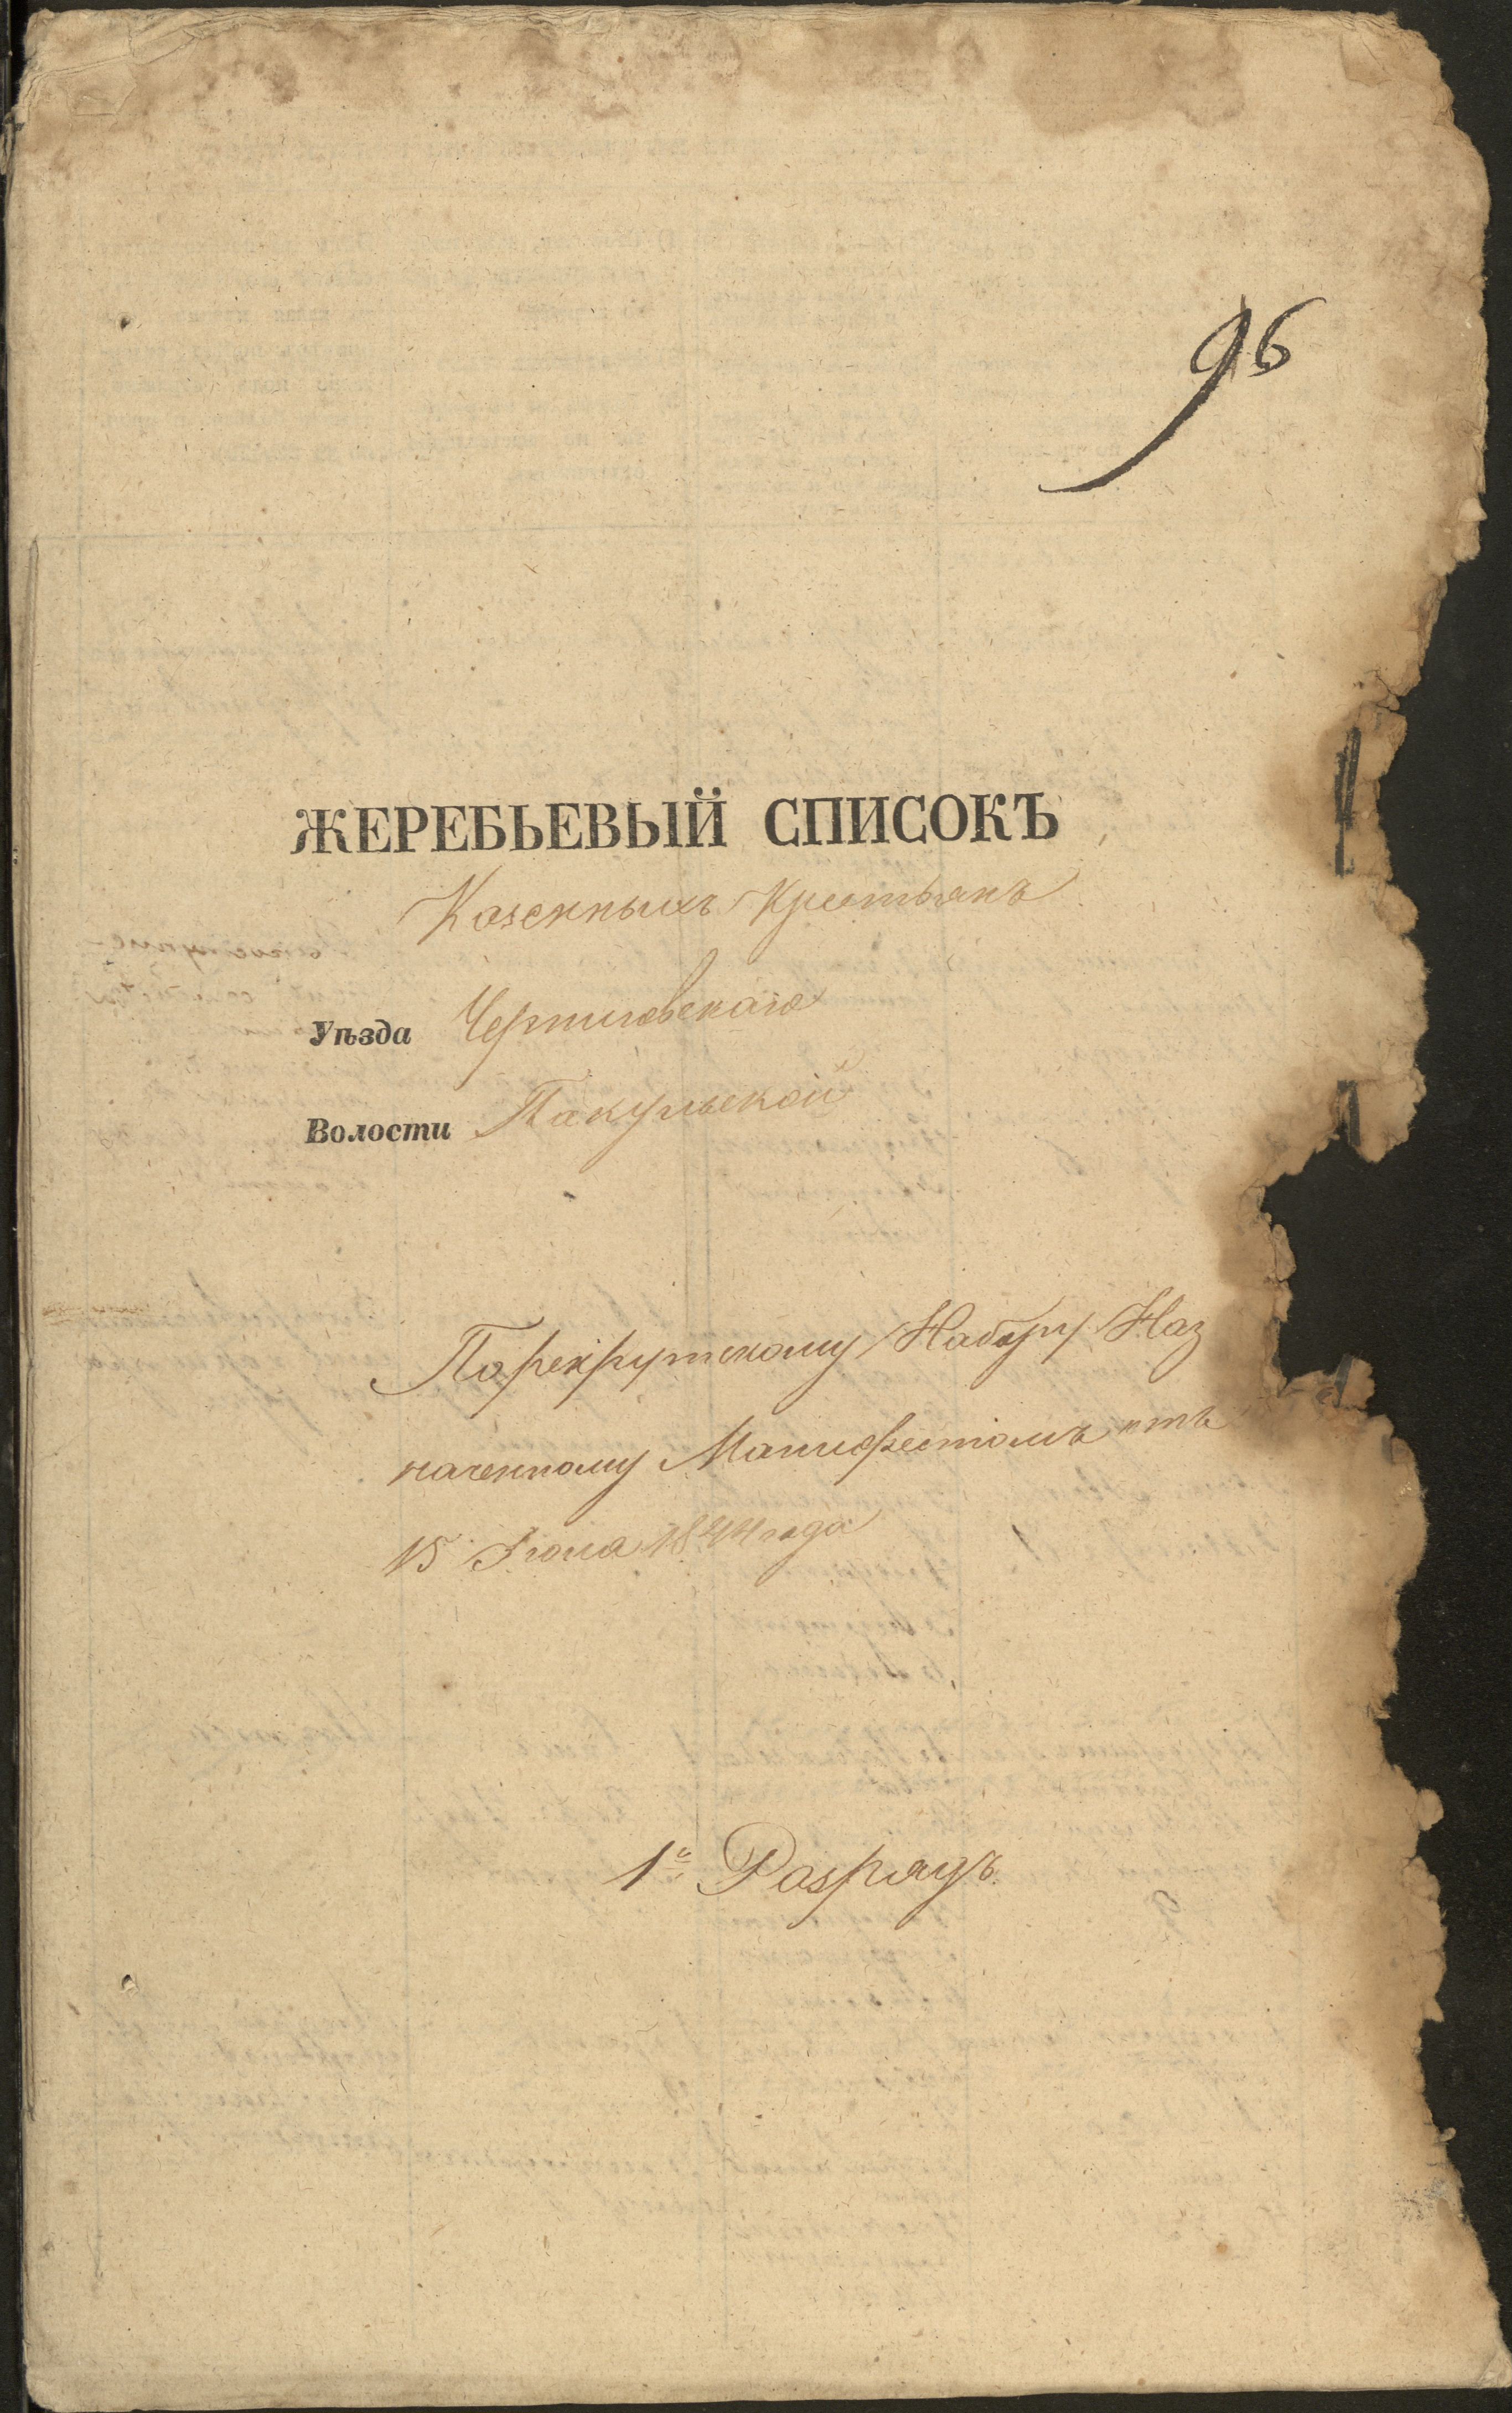 96
ЖЕРЕБЬЕВЫЙ СПИСОКЪ
Козенныхъ Крестьянъ
Уѣзда Черниговскаго
Волости Пакульской
Порекрутскому Набору Наз
наченному Манифестомъ отъ
15 Іюла 1844 года
1й Розрядъ.